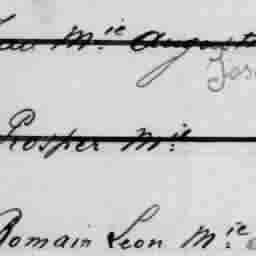 Mie August
Jos
Prosper Mie
Romain Leon Mie